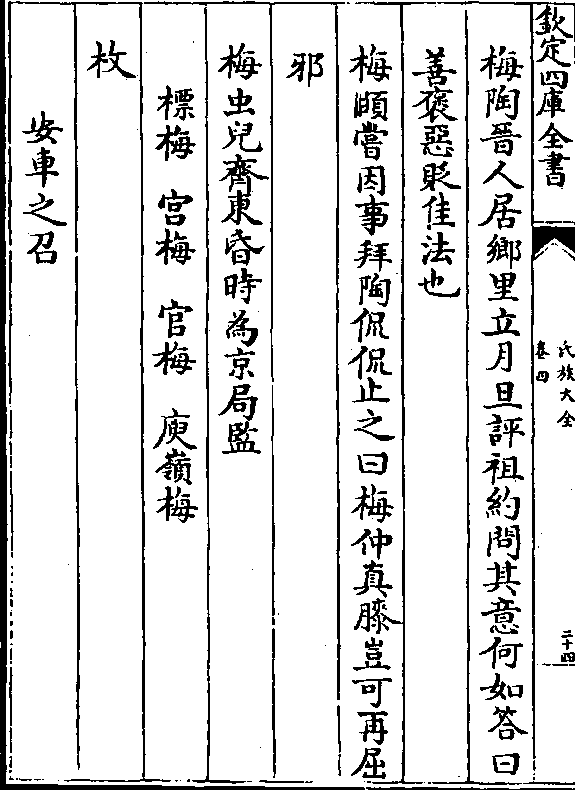 欽定四庫全書
氏族大全
卷四
二十四
梅陶晉人居鄉里立月旦評祖約問其意何如答曰
善褒惡貶佳法也
梅頤嘗因事拜陶侃侃止之曰梅仲真膝豈可再屈
邪
梅虫兒齊東昏時為京局監
標梅　宫梅　官梅　庾嶺梅
枚
安車之召